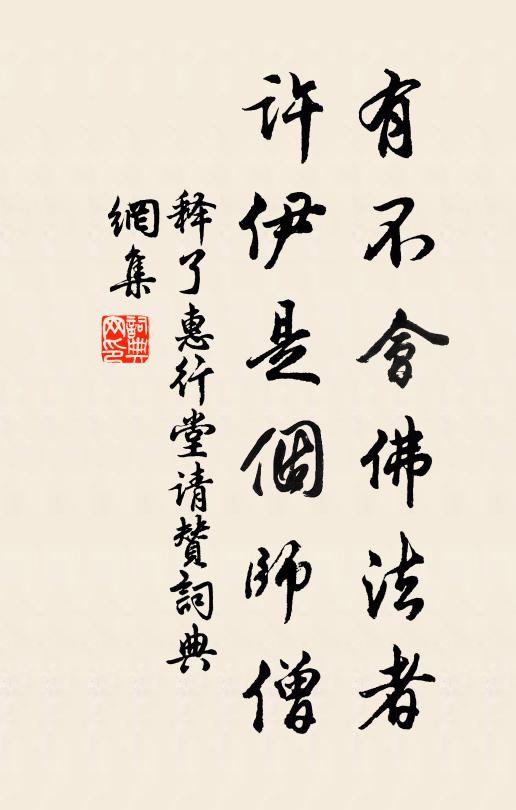 有不會佛法者
許伊是個師僧
释了惠行堂请贊詞典
網集
詞典
网印